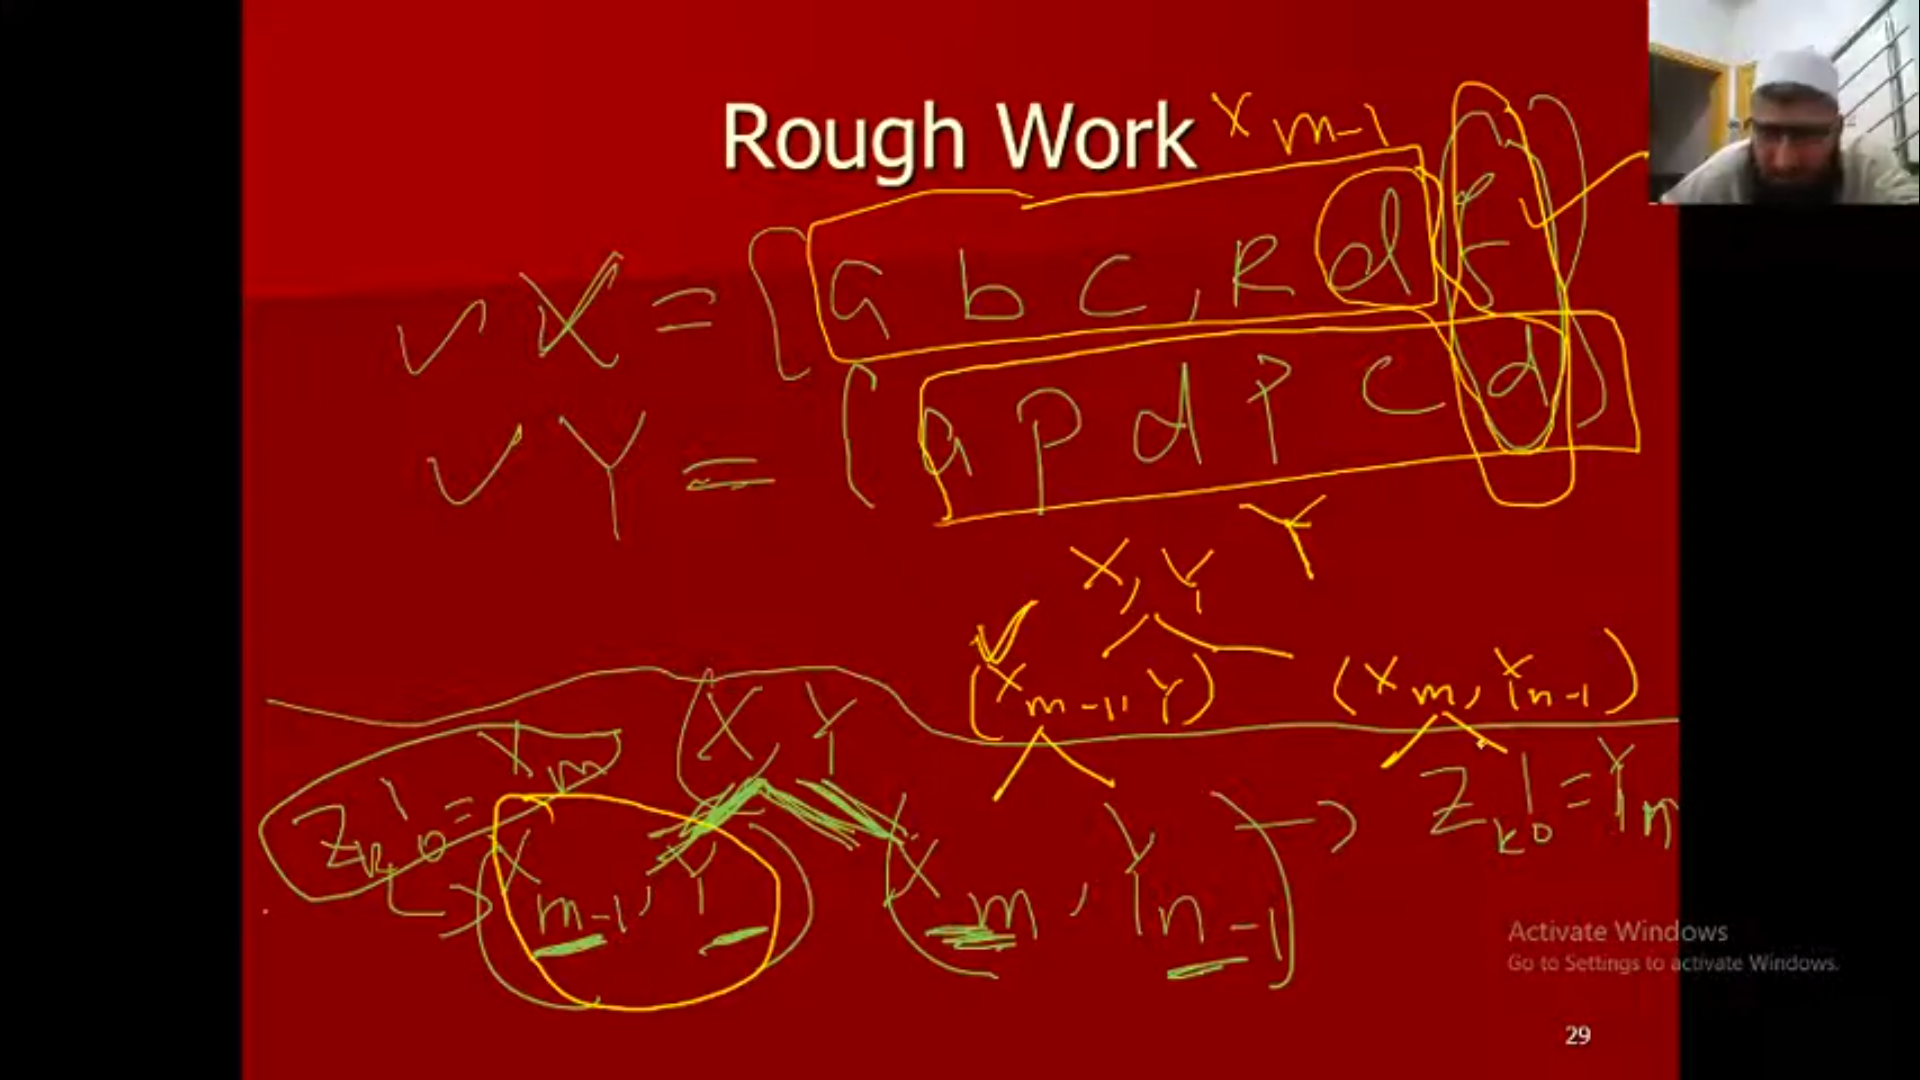 Rough Work
X m-1
X = [a b c, R d f]
Y = [a p d p c d]
Y
X, Y
(X m-1, Y) (X m, Y n-1)
(X, Y
Z k != X m
Z k != Y n
X m-1, Y
(X m, Y n-1)
Activate Windows
Go to Settings to activate Windows.
29